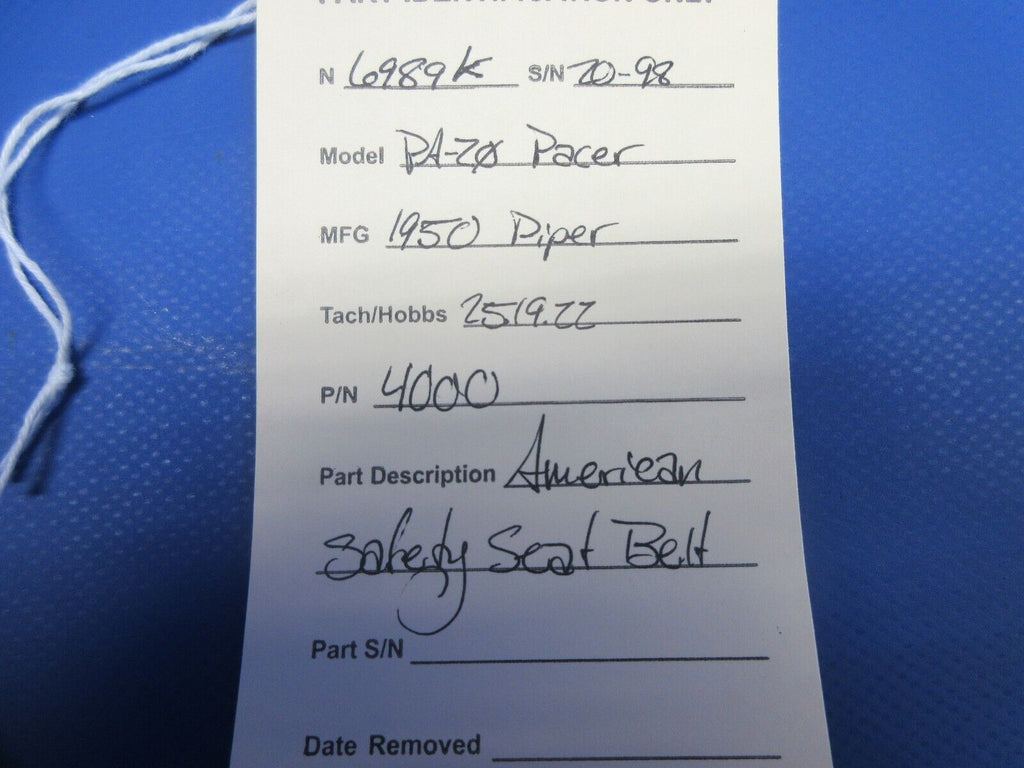 PART IDENTIFICATION ONLY
N 6989K S/N 20-98
Model PA-20 Pacer
MFG 1950 Piper
Tach/Hobbs 2519.22
P/N 4000
Part Description American
Safety Seat Belt
Part S/N
Date Removed